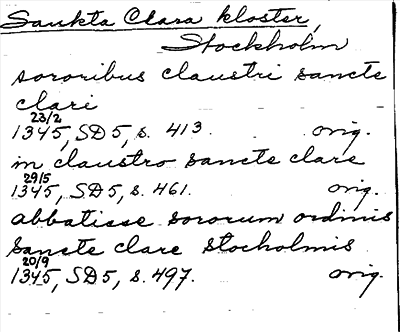 Sankta Clara kloster,
Stockholm
sororibus claustri sancte
clari
23/2
1345, SD 5, s. 413. orig.
in claustro sancte clare
29/5
1345, SD 5, s. 461. orig.
abbatisse sororum ordinis
sancte clare stocholmis
20/9
1345, SD 5, s. 497. orig.